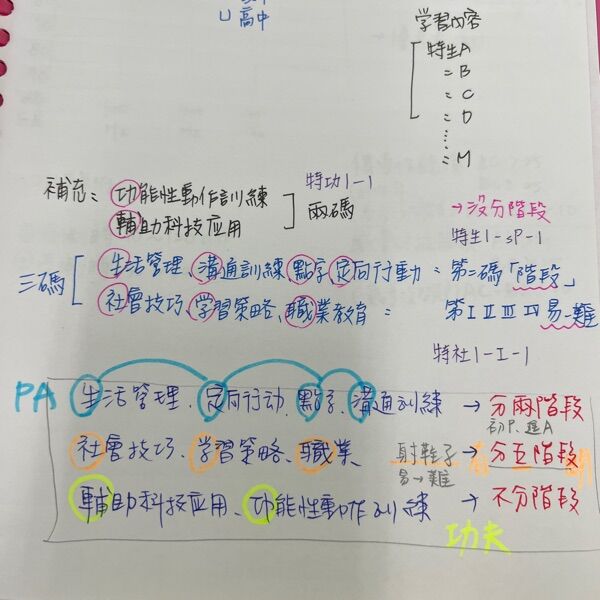 U 高中
学習內容
特生A
= B
= C
= D
⋮
= M
補充= 功能性動作訓練
輔助科技应用
特功1-1
兩碼
→沒分階段
特生1-sP-1
三碼
生活管理、溝通訓練、點字、定向行動 = 第二碼「階段」
社會技巧、学習策略、職業教育 = 第ⅠⅡⅢⅣ 易-難
特社1-I-1
PA 生活管理、定向行动、點字、溝通訓練 → 分兩階段
初P、進A
社會技巧、学習策略、職業、 → 分五階段
易→難
輔助科技应用、功能性動作訓練 → 不分階段
功夫